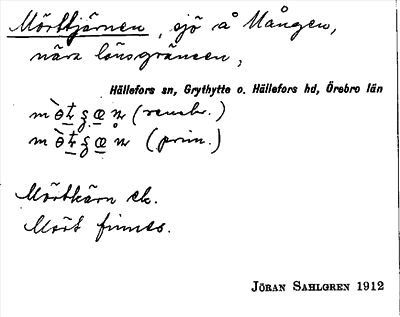 Mörttjärnen, sjö å Mången,
nära länsgränsen,
Hällefors sn, Grythytte o. Hällefors hd, Örebro län
(rembr.)
(prim.)
Mörtkärn ek.
Mört finnes.
JÖRAN SAHLGREN 1912